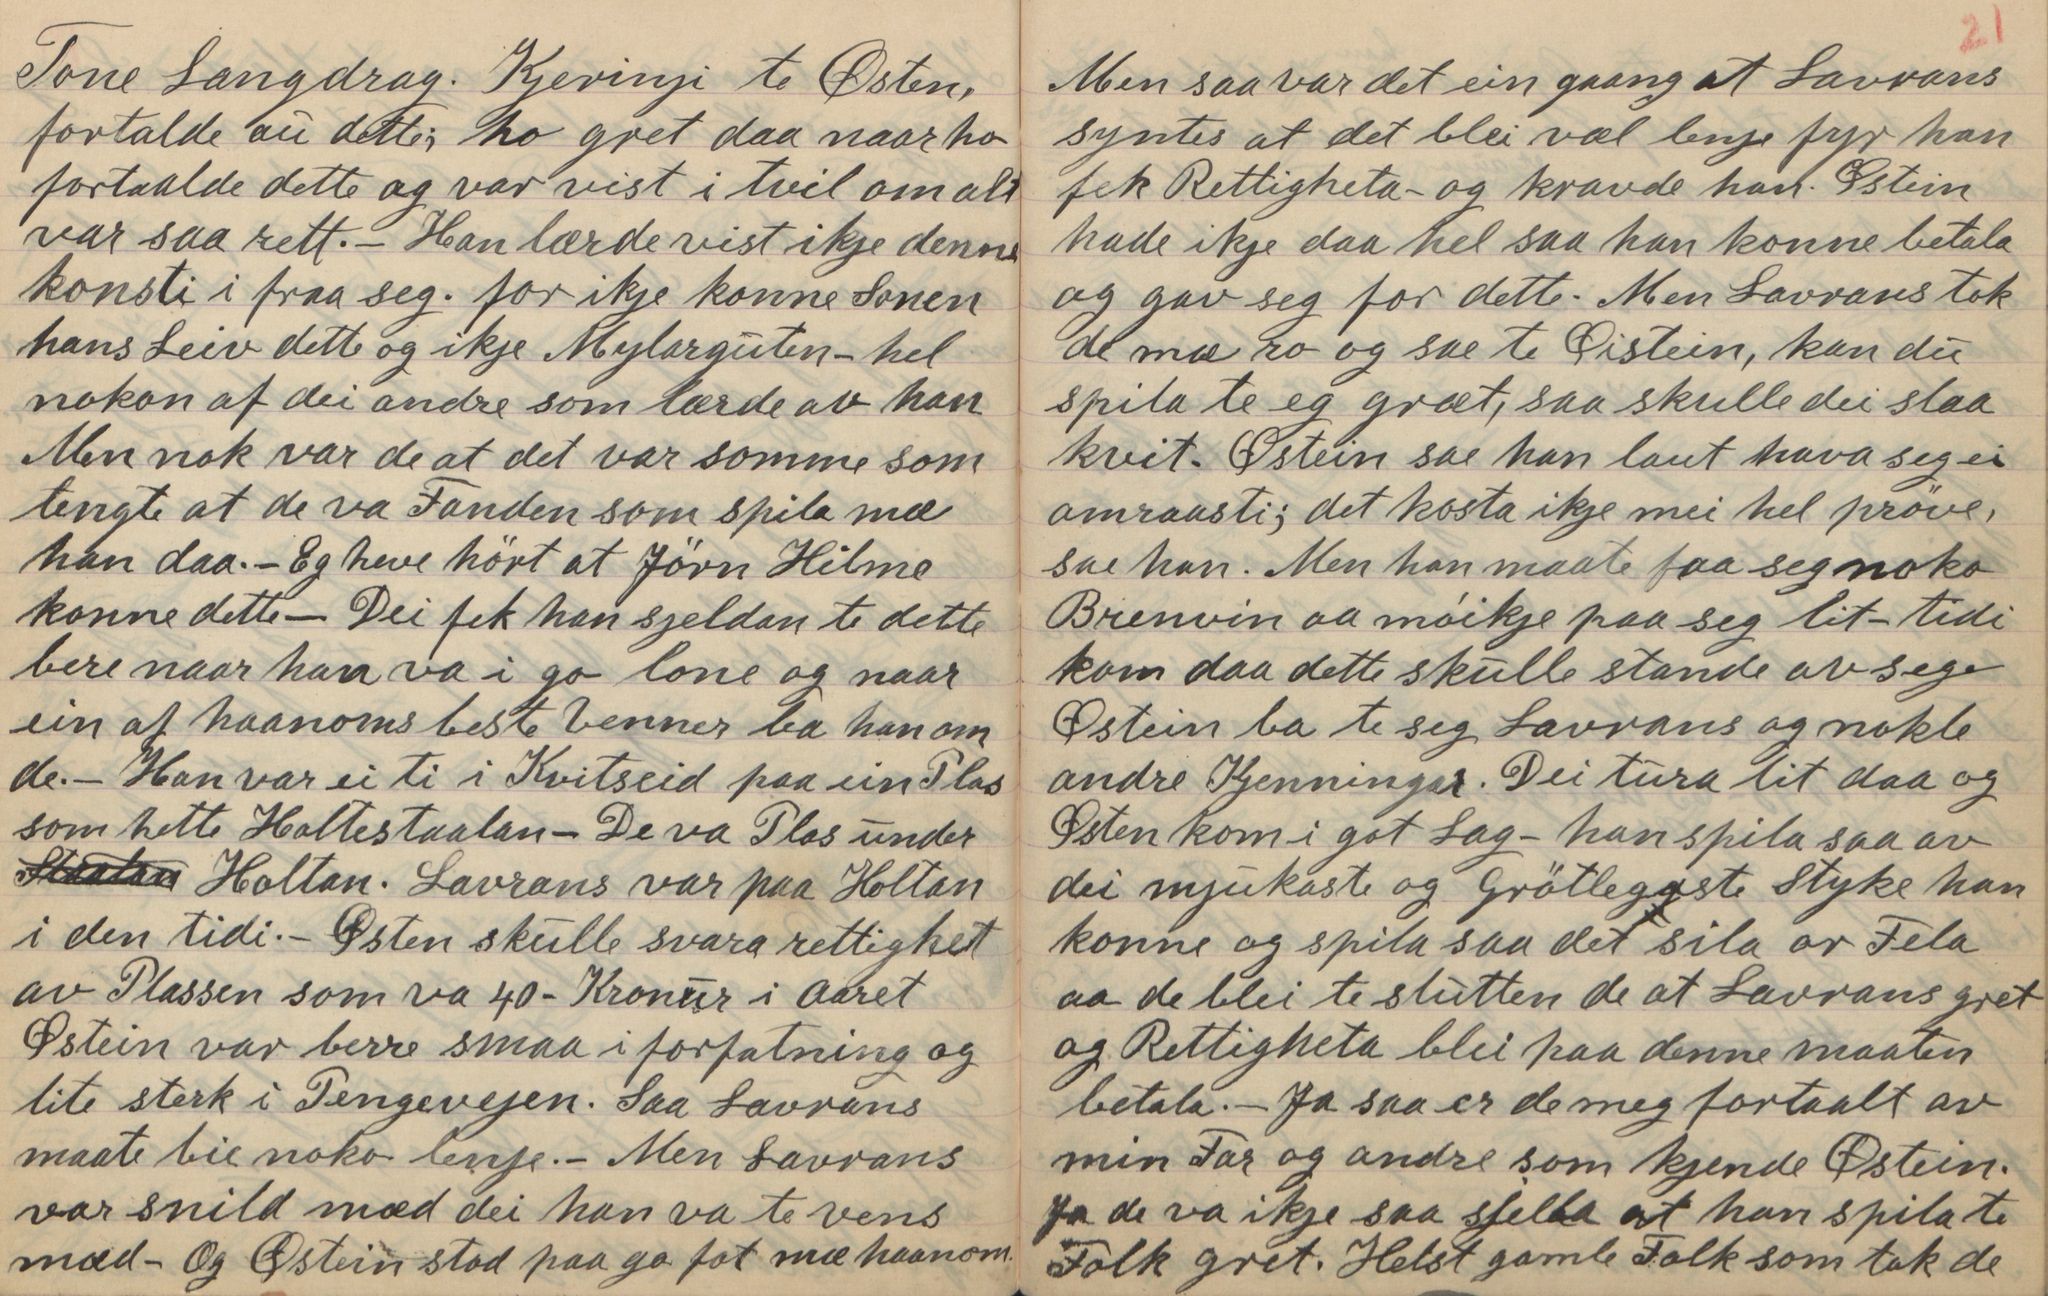 Tone Langdrag. Kjerinji te Østen,
fortalde aú dette; ho gret daa naar ho
fortaalde dette og var vist i tvil om alt
var saa rett. – Han lærde vist ikje denne
konsti i fraa seg. for ikje konne Sonen
hans Leiv dette og ikje Mylargúten – hel
nokon af dei andre som lærde av han
Men nok var de at det var somme som
tengte at de va Fanden som spila mæ
han daa. – Eg heve hört at Jörn Hilme
konne dette – Dei fek han sjeldan te dette
bere naar han va i go lone og naar
ein af haanoms beste Venner ba han om
de. – Han var ei ti i Kvitseid paa ein Plas
som hette Holtestaalan – De va Plas únder
Holtan. Lavrans var paa Holtan
i den tidi. – Østen skúlle svara rettighet
av Plassen som va 40 – Kronúr i Aaret
Østein var berre smaa i forfatning og
lite sterk i Pengevejen. Saa Lavrans
maate bie noko lenje. – Men Lavrans
var snild mæd dei han va te vens
mæd – Og Østein stod paa go fot mæ haanom.
21
Men saa var det ein gaang at Lavrans
syntes at det blei væl lenje fyr han
fek Rettigheta – og kravde han. Østein
hade ikje daa hel saa han konne betala
og gav seg for dette. Men Lavrans tok
de mæ ro og sae te Øistein, kan dú
spila te eg græt, saa skulle dei slaa
kvit. Østein sae han laut hava seg ei
omraasti; det kosta ikje mei hel pröve,
sae han. Men han maate faa seg noko
Brenvin aa móikje paa seg lit – tidi
kom daa dette skúlle stande av seg
Østein ba te seg Lavrans og nokle
andre Kjenningar. Dei túra lit daa og
Østen kom i got Lag – han spila saa av
dei mjúkaste og Grötlegaste Styke han
konne og spila saa det sila or Fela
aa de blei te slútten de at Lavrans gret
og Rettigheta blei paa denne maaten
betala. – Ja saa er de meg fortaalt av
min Far og andre som kjende Østein.
Ja de va ikje saa sjelda at han spila te
Folk gret. Helst gamle Folk som tok de